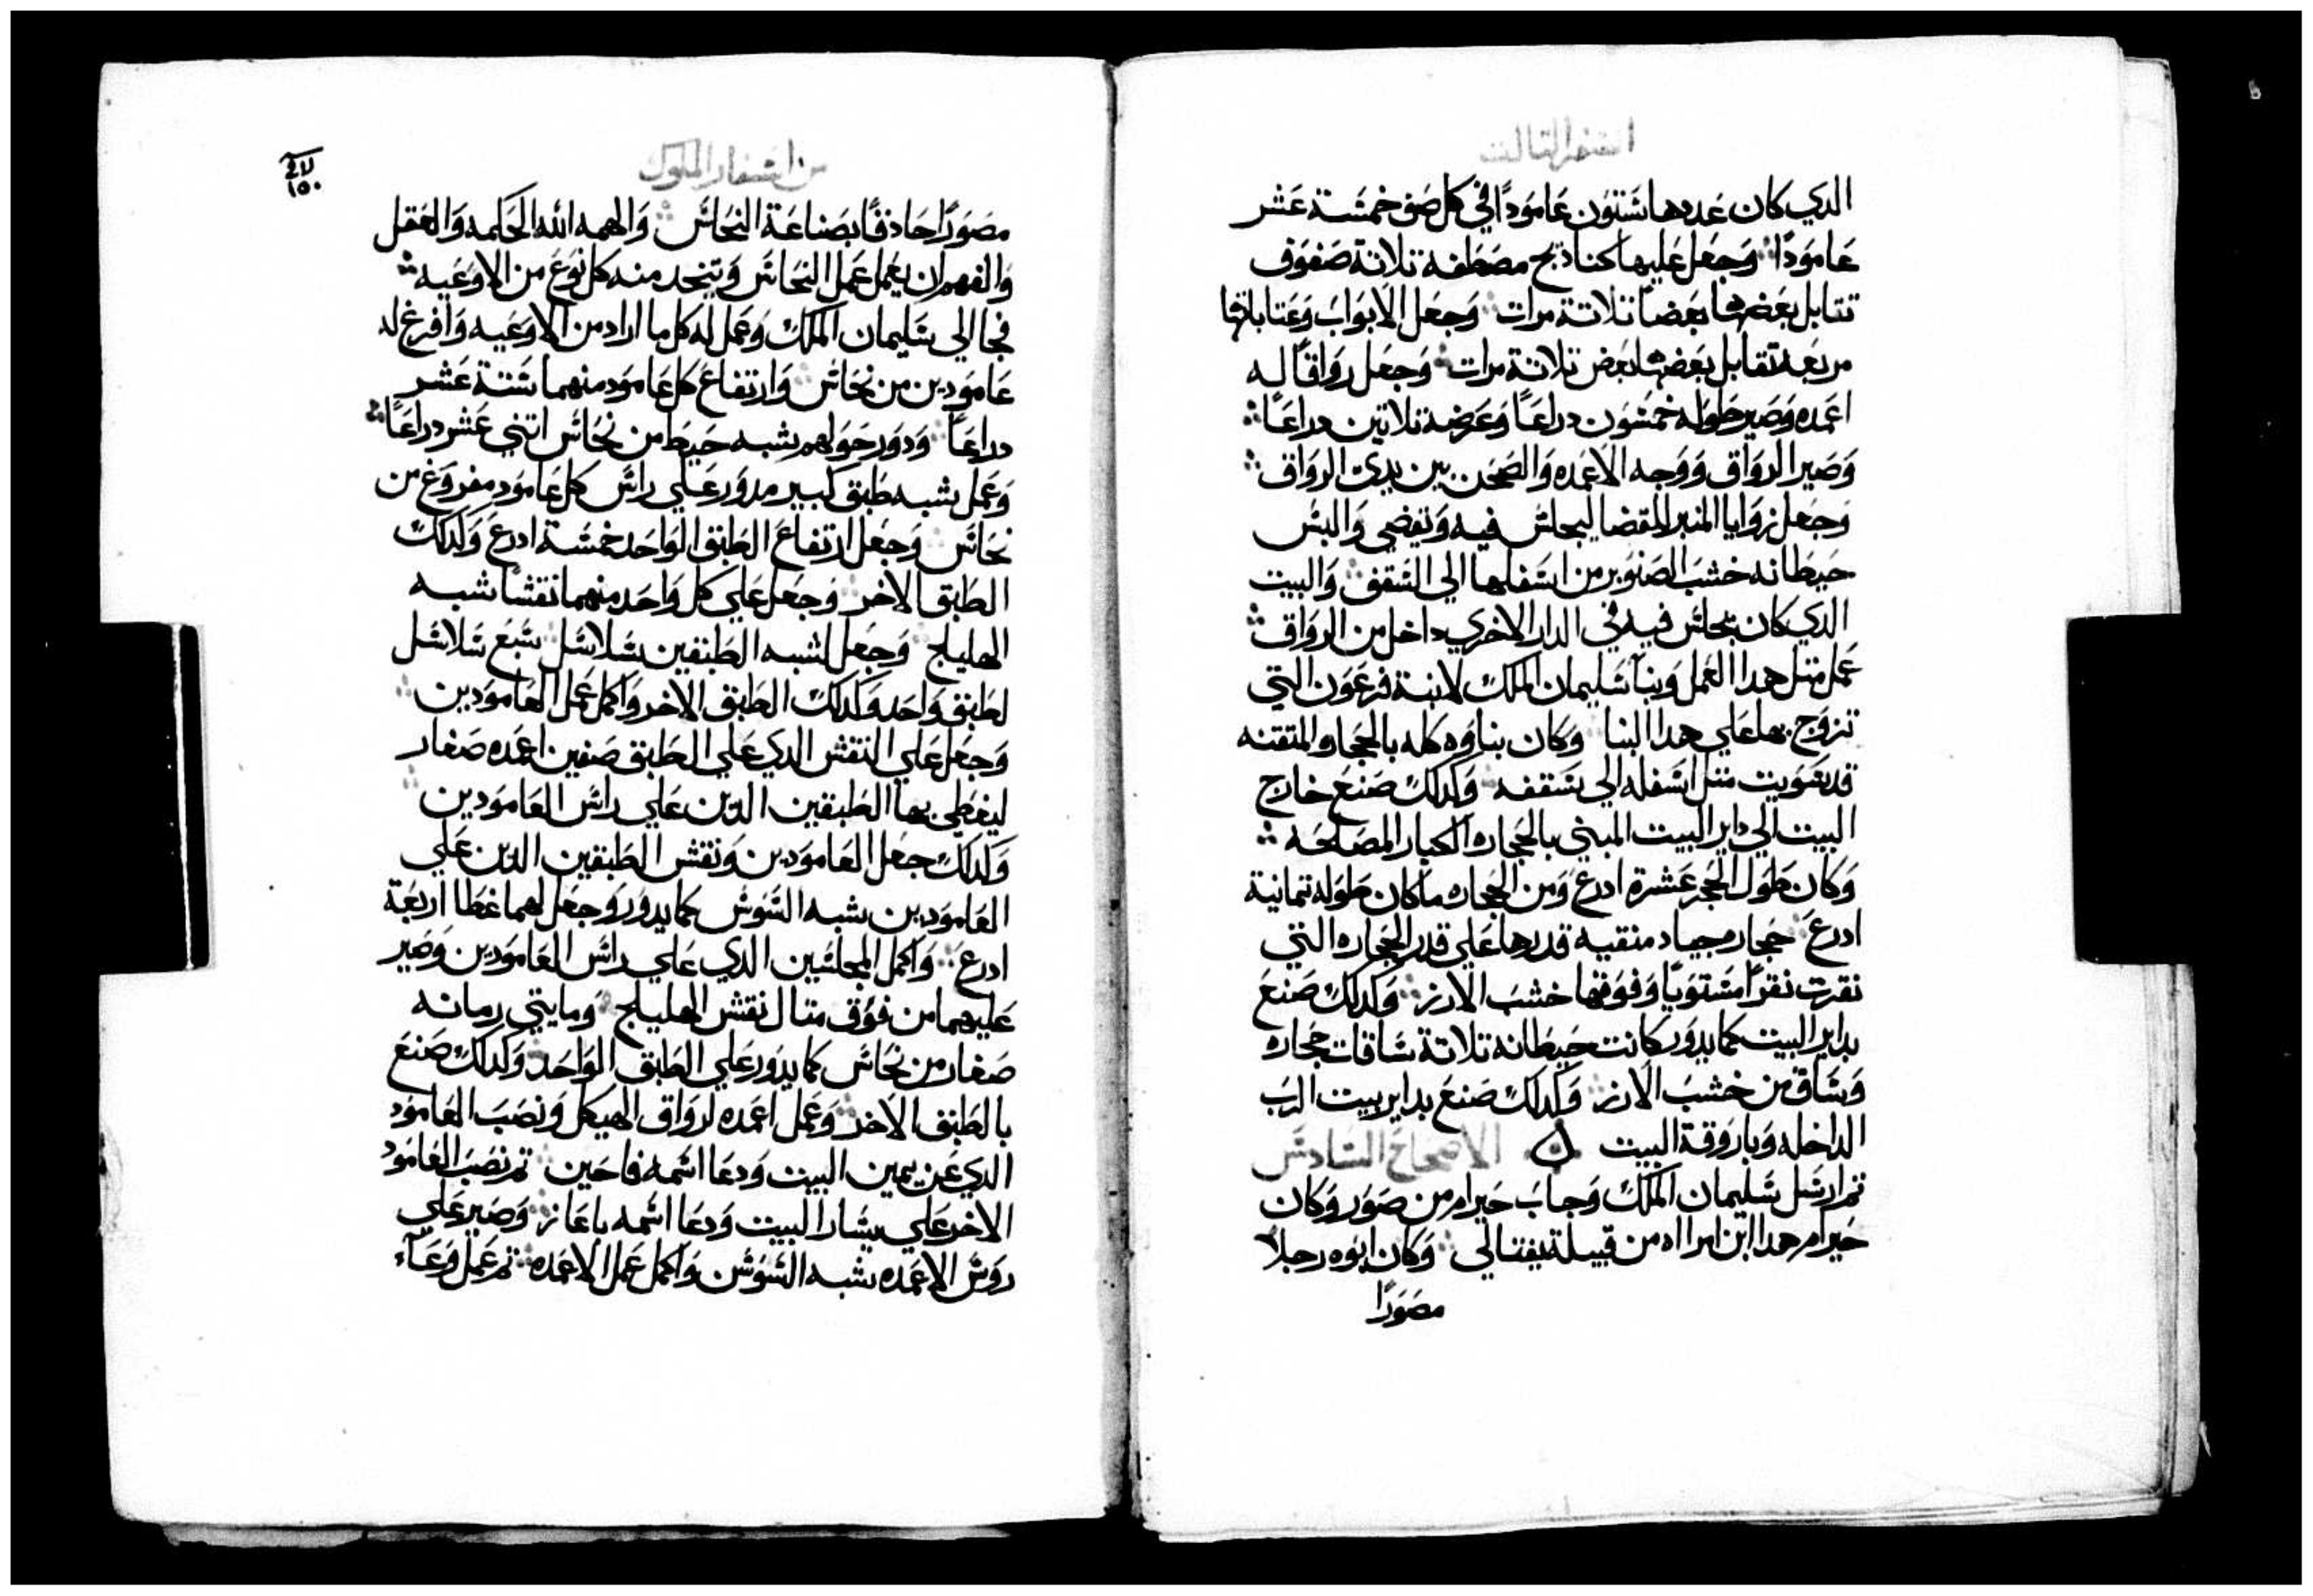 السفر التالت
الدي كان عددها ستون عامودًا في كل صف خمسة عشر
عامودًا وجعل عليها كنادبج مصطفه تلاتة صفوف
تتابل بعضها بعضًا تلاتة مرات وجعل الابواب وعتاباتها
مربعه تقابل بعضها بعض تلاتة مرات وجعل رواقًا له
اعمده وصير طوله خمسون دراعًا وعرضه تلاتين دراعًا
وصير الرواق ووجه الاعمده والصحن بين يدي الرواق
وجعل زوايا المنبر للقضا ليجلس فيه ويقضي والبس
حيطانه خشب الصنوبر من اسفلها الي السقف والبيت
الدي كان يجلس فيه في الدار الاخري داخل من الرواق
عمل متل هدا العمل وبنا سليمان الملك لابنة فرعون التي
تزوج بها علي هدا البنا وكان بناوه كله بالحجاره المتقنه
قد سويت متل اسفله الي سقفه وكدلك صنع خارج
البيت الي داير البيت المبني بالحجاره الكبار المصلحه
وكان طول الحجر عشرة ادرع ومن الحجاره ما كان طوله تمانية
ادرع حجاره جياد منقيه قدرها علي قدر الحجاره التي
نقرت نقرًا مستويًا وفوقها خشب الارز وكدلك صنع
بداير البيت كما يدور كانت حيطانه تلاتة ساقات حجاره
وساق من خشب الارز وكدلك صنع بداير بيت الرب
الداخله وباروقة البيت الاصحاح السادس
تم ارسل سليمان الملك وجاب حيرام من صور وكان
حيرام هدا ابن امرااه من قبيلة يفتالي وكان ابوه رجلًا
مصورًا
من اسفار الملوك
١٥٠
مصورًا حاذقًا بصناعة النحاس والهمه الله الحكمه والعقل
والفهم ان يعمل عمل النحاس ويتخد منه كل نوع من الاوعيه
فجا الي سليمان الملك وعمل له كل ما اراد من الاوعيه وافرغ له
عامودين من نحاس وارتفاع كل عامود منهما ستة عشر
دراعًا ودور حولهم شبه خيط من نحاس اتني عشر دراعًا
وعمل شبه طبق كبير مدور علي راس كل عامود مفروغ من
نحاس وجعل ارتفاع الطبق الواحد خمسة ادرع وكدلك
الطبق الاخر وجعل علي كل واحد منهما نقشًا شبه
الهليلج وجعل لشبه الطبقين سلاسل سبع سلاسل
لطبق واحد وكدلك الطبق الاخر واكمل عمل العامودين
وجعل علي النقش الدي علي الطبق صفين اعمده صغار
ليغطي بها الطبقين الدين علي راس العامودين
وكدلك جعل العامودين ونقش الطبقين الدين علي
العامودين بشبه السوسن كما يدور وجعل لهما غطا اربعة
ادرع واكمل المجلسين الدي علي راس العامودين وصير
عليهما من فوق متال نقش الهليلج ومايتي رمانه
صغار من نحاس كما يدور علي الطبق الواحد وكدلك صنع
بالطبق الاخر وعمل اعمده لرواق الهيكل ونصب العامود
الدي عن يمين البيت ودعا اسمه فاحين تم نصب العامود
الاخر علي يسار البيت ودعا اسمه باعاز وصير علي
روس الاعمده شبه السوسن واكمل عمل الاعمده تم عمل وعآء